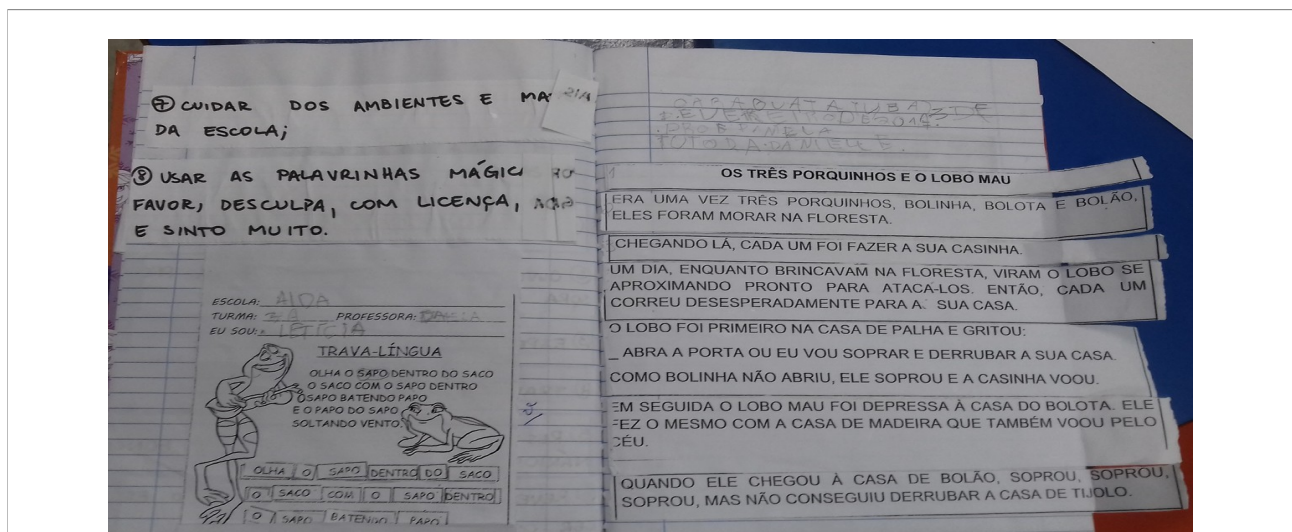 ⑦ CUIDAR DOS AMBIENTES E MA
DA ESCOLA;
⑧ USAR AS PALAVRINHAS MÁGIC
FAVOR, DESCULPA, COM LICENÇA,
E SINTO MUITO.
ESCOLA: AIDA
TURMA: PROFESSORA:
EU SOU: LETICIA
TRAVA-LÍNGUA
OLHA O SAPO DENTRO DO SACO
O SACO COM O SAPO DENTRO
O SAPO BATENDO PAPO
E O PAPO DO SAPO
SOLTANDO VENTO.
OLHA O SAPO DENTRO DO SACO
O SACO COM O SAPO DENTRO
O SAPO BATENDO PAPO
OS TRÊS PORQUINHOS E O LOBO MAU
ERA UMA VEZ TRÊS PORQUINHOS, BOLINHA, BOLOTA E BOLÃO,
ELES FORAM MORAR NA FLORESTA.
CHEGANDO LÁ, CADA UM FOI FAZER A SUA CASINHA.
UM DIA, ENQUANTO BRINCAVAM NA FLORESTA, VIRAM O LOBO SE
APROXIMANDO PRONTO PARA ATACA-LOS. ENTÃO, CADA UM
CORREU DESESPERADAMENTE PARA A. SUA CASA.
O LOBO FOI PRIMEIRO NA CASA DE PALHA E GRITOU:
_ ABRA A PORTA OU EU VOU SOPRAR E DERRUBAR A SUA CASA.
COMO BOLINHA NÃO ABRIU, ELE SOPROU E A CASINHA VOOU.
EM SEGUIDA O LOBO MAU FOI DEPRESSA À CASA DO BOLOTA. ELE
FEZ O MESMO COM A CASA DE MADEIRA QUE TAMBÉM VOOU PELO
CÉU.
QUANDO ELE CHEGOU À CASA DE BOLÃO, SOPROU, SOPROU,
SOPROU, MAS NÃO CONSEGUIU DERRUBAR A CASA DE TIJOLO.